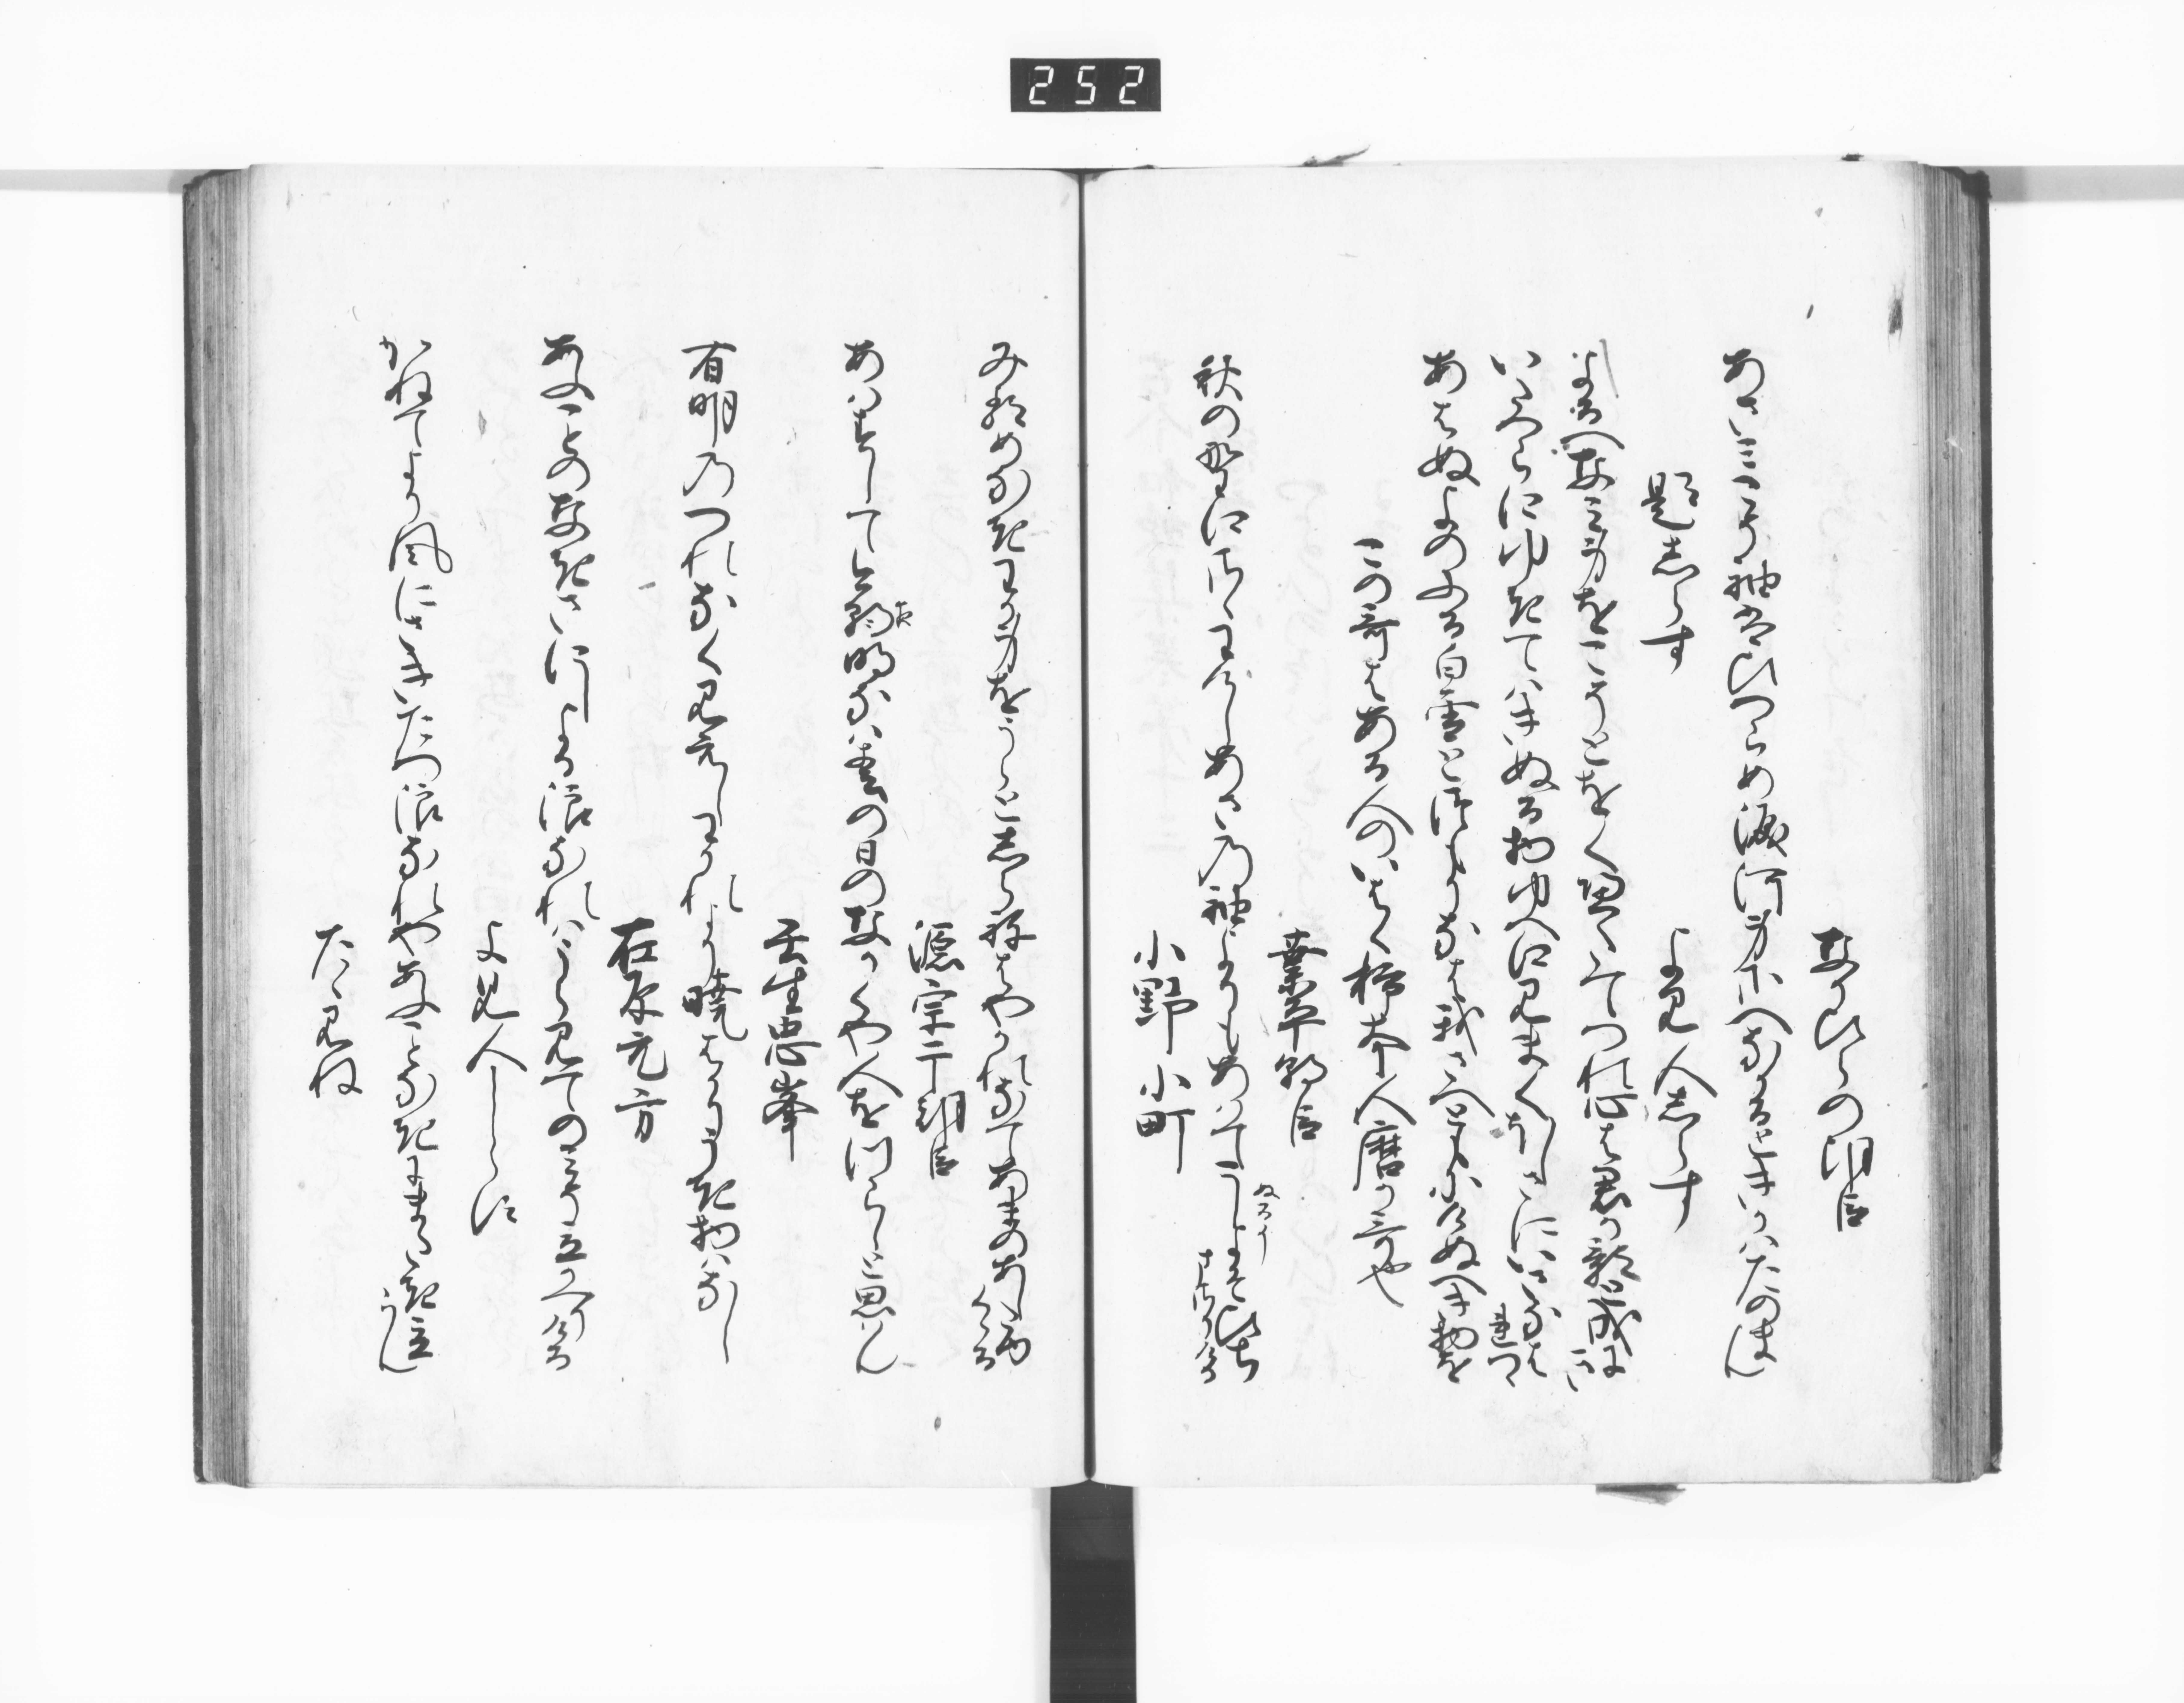 252
なりひらの朝臣
あさみこそ袖はひつらめ涙河身さへなかるときかはたのまん
題しらす
よみ人しらす
よるへなみ身をこそとをくへたてつれ心は君か影と成にき
いたつらに行てはきぬる物ゆへに見まくほしさにいさなはれつゝ
あはぬよのふる白雪とつもりなは我さへともにけぬへき物を
この哥はある人のいはく柿本人麿か哥也
業平朝臣
秋の野にさゝわけしあさの袖よりもあはてこしよそひち
まさりける
小野小町
みるめなきわか身をうらとしらねはやかれなてあまのあしたゆく
くる
源宗于朝臣
あはすしてこよひ明なは春の日のなかくや人をつらしと思はん
壬生忠岑
有明のつれなく見えしわかれより暁はかりうき物はなし
在原元方
あふことのなきさにしよる浪なれはうらみてのみそ立かへりける
よみ人しらす
かねてより風にさきたつ浪なれやあふことなきにまたき立
らん
たゝみね